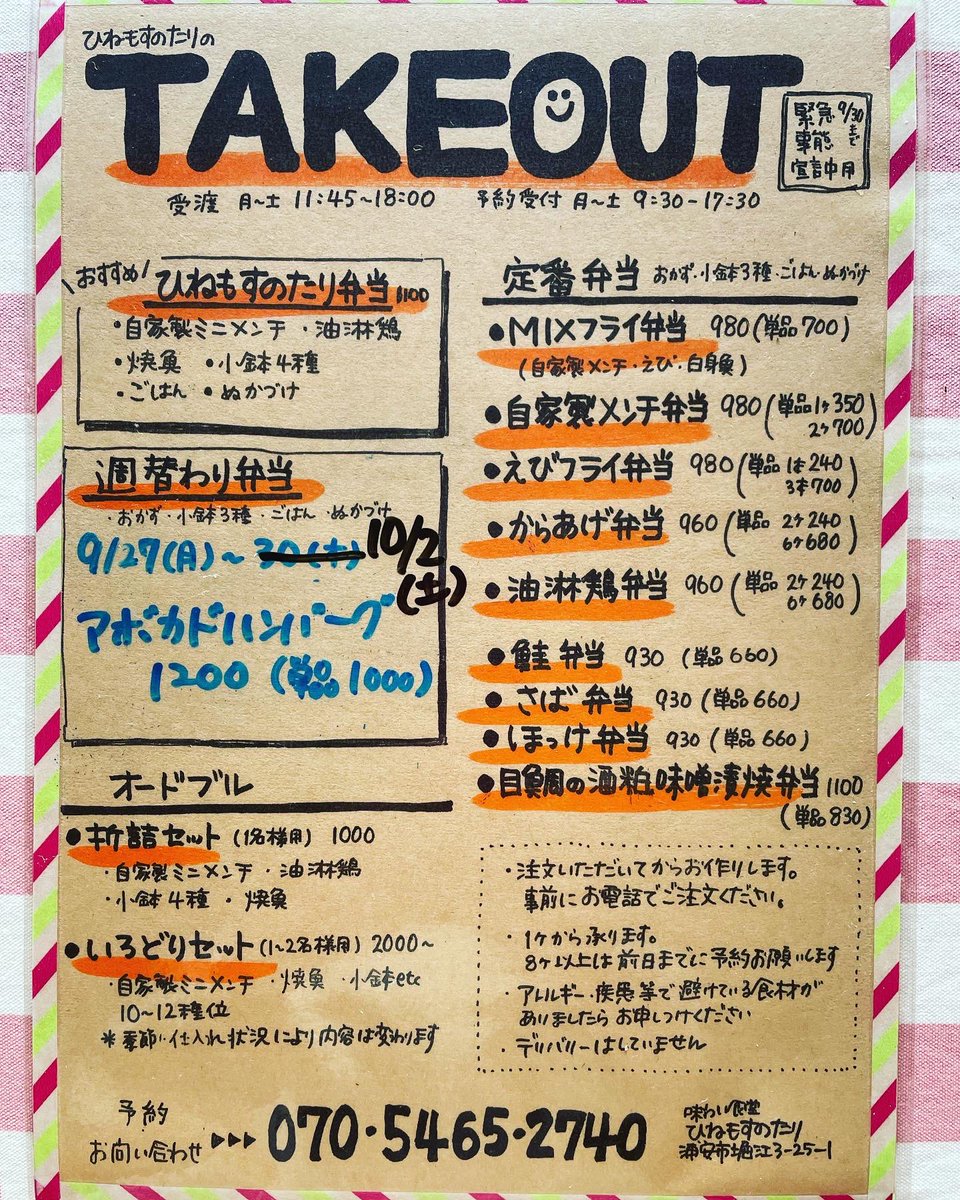 ひねもすのたりの
TAKEOUT
緊急事態宣言中用
9/30まで
受渡 月〜土 11:45〜18:00 予約受付 月〜土 9:30-17:30
\おすすめ/
ひねもすのたり弁当 1100
・自家製ミニメンチ ・油淋鶏
・焼魚 ・小鉢4種
・ごはん ・ぬかづけ
週替わり弁当
・おかず・小鉢3種・ごはん・ぬかづけ
9/27(月)〜30(木) 10/2(土)
アボカドハンバーグ
1200 (単品1000)
オードブル
●折詰セット (1名様用) 1000
・自家製ミニメンチ ・油淋鶏
・小鉢4種 ・焼魚
●いろどりセット (1〜2名様用) 2000〜
・自家製ミニメンチ ・焼魚 ・小鉢etc
10〜12種位
*季節・仕入れ状況により内容は変わります
定番弁当 おかず・小鉢3種・ごはん・ぬかづけ
●MIXフライ弁当 980 (単品700)
(自家製メンチ・えび・白身魚)
●自家製メンチ弁当 980 (単品1ヶ350
2ヶ700)
●えびフライ弁当 980 (単品 1本240
3本700)
●からあげ弁当 960 (単品 2ヶ240
6ヶ680)
●油淋鶏弁当 960 (単品 2ヶ240
6ヶ680)
●鮭弁当 930 (単品660)
●さば弁当 930 (単品660)
●ほっけ弁当 930 (単品660)
●目鯛の酒粕味噌漬焼弁当 1100
(単品830)
・注文いただいてからお作りします。
事前にお電話でご注文ください。
・1ヶから承ります。
8ヶ以上は前日までに予約お願いします
・アレルギー・疾患等で避けている食材が
ありましたらお申しつけください
・デリバリーはしていません
予約
お問い合わせ ▶▶▶ 070・5465・2740
味わい食堂
ひねもすのたり
浦安市堀江3-25-1